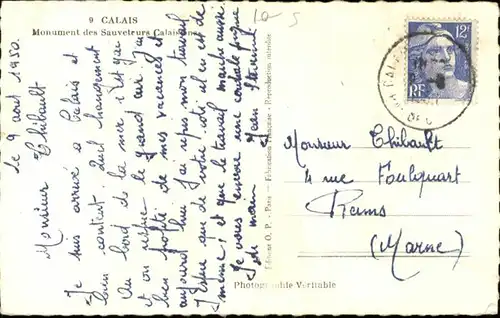 9 CALAIS
Monument des Sauveteurs Calaisiens
le 9 août 1950.
Monsieur Thibault
Je suis arrivé à Calais et
bien content. Quel changement
Au bord de la mer c'est gai
et on respire le grand air. J'ai
bien profité de mes vacances et
aujourd'hui j'ai repris mon travail
J'espère que de votre côté il en est de
même, et que le travail marche aussi.
Je vous envoie une cordiale poignée
de main Jean
Editions O. P. - Paris - Fabrication Française - Reproduction interdite
Photographie Véritable
12F
RF
Monsieur Thibault
4 rue Foulquart
Reims
(Marne)